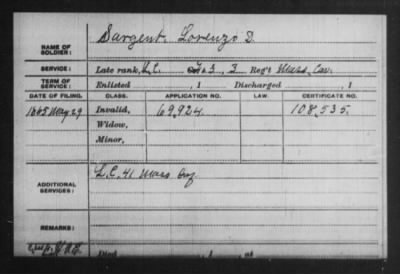 NAME OF SOLDIER: Sargent, Lorenzo D.
SERVICE: Late rank, L.C. F&S, 3 Reg't Mass. Cav.
TERM OF SERVICE: Enlisted , 1 Discharged , 1
DATE OF FILING. CLASS. APPLICATION NO. LAW. CERTIFICATE NO.
1865 May 29 Invalid, 69,924. 108,535.
Widow,
Minor,
ADDITIONAL SERVICES: L.C. 41 Mass Inf
REMARKS:
Died , 1 , at